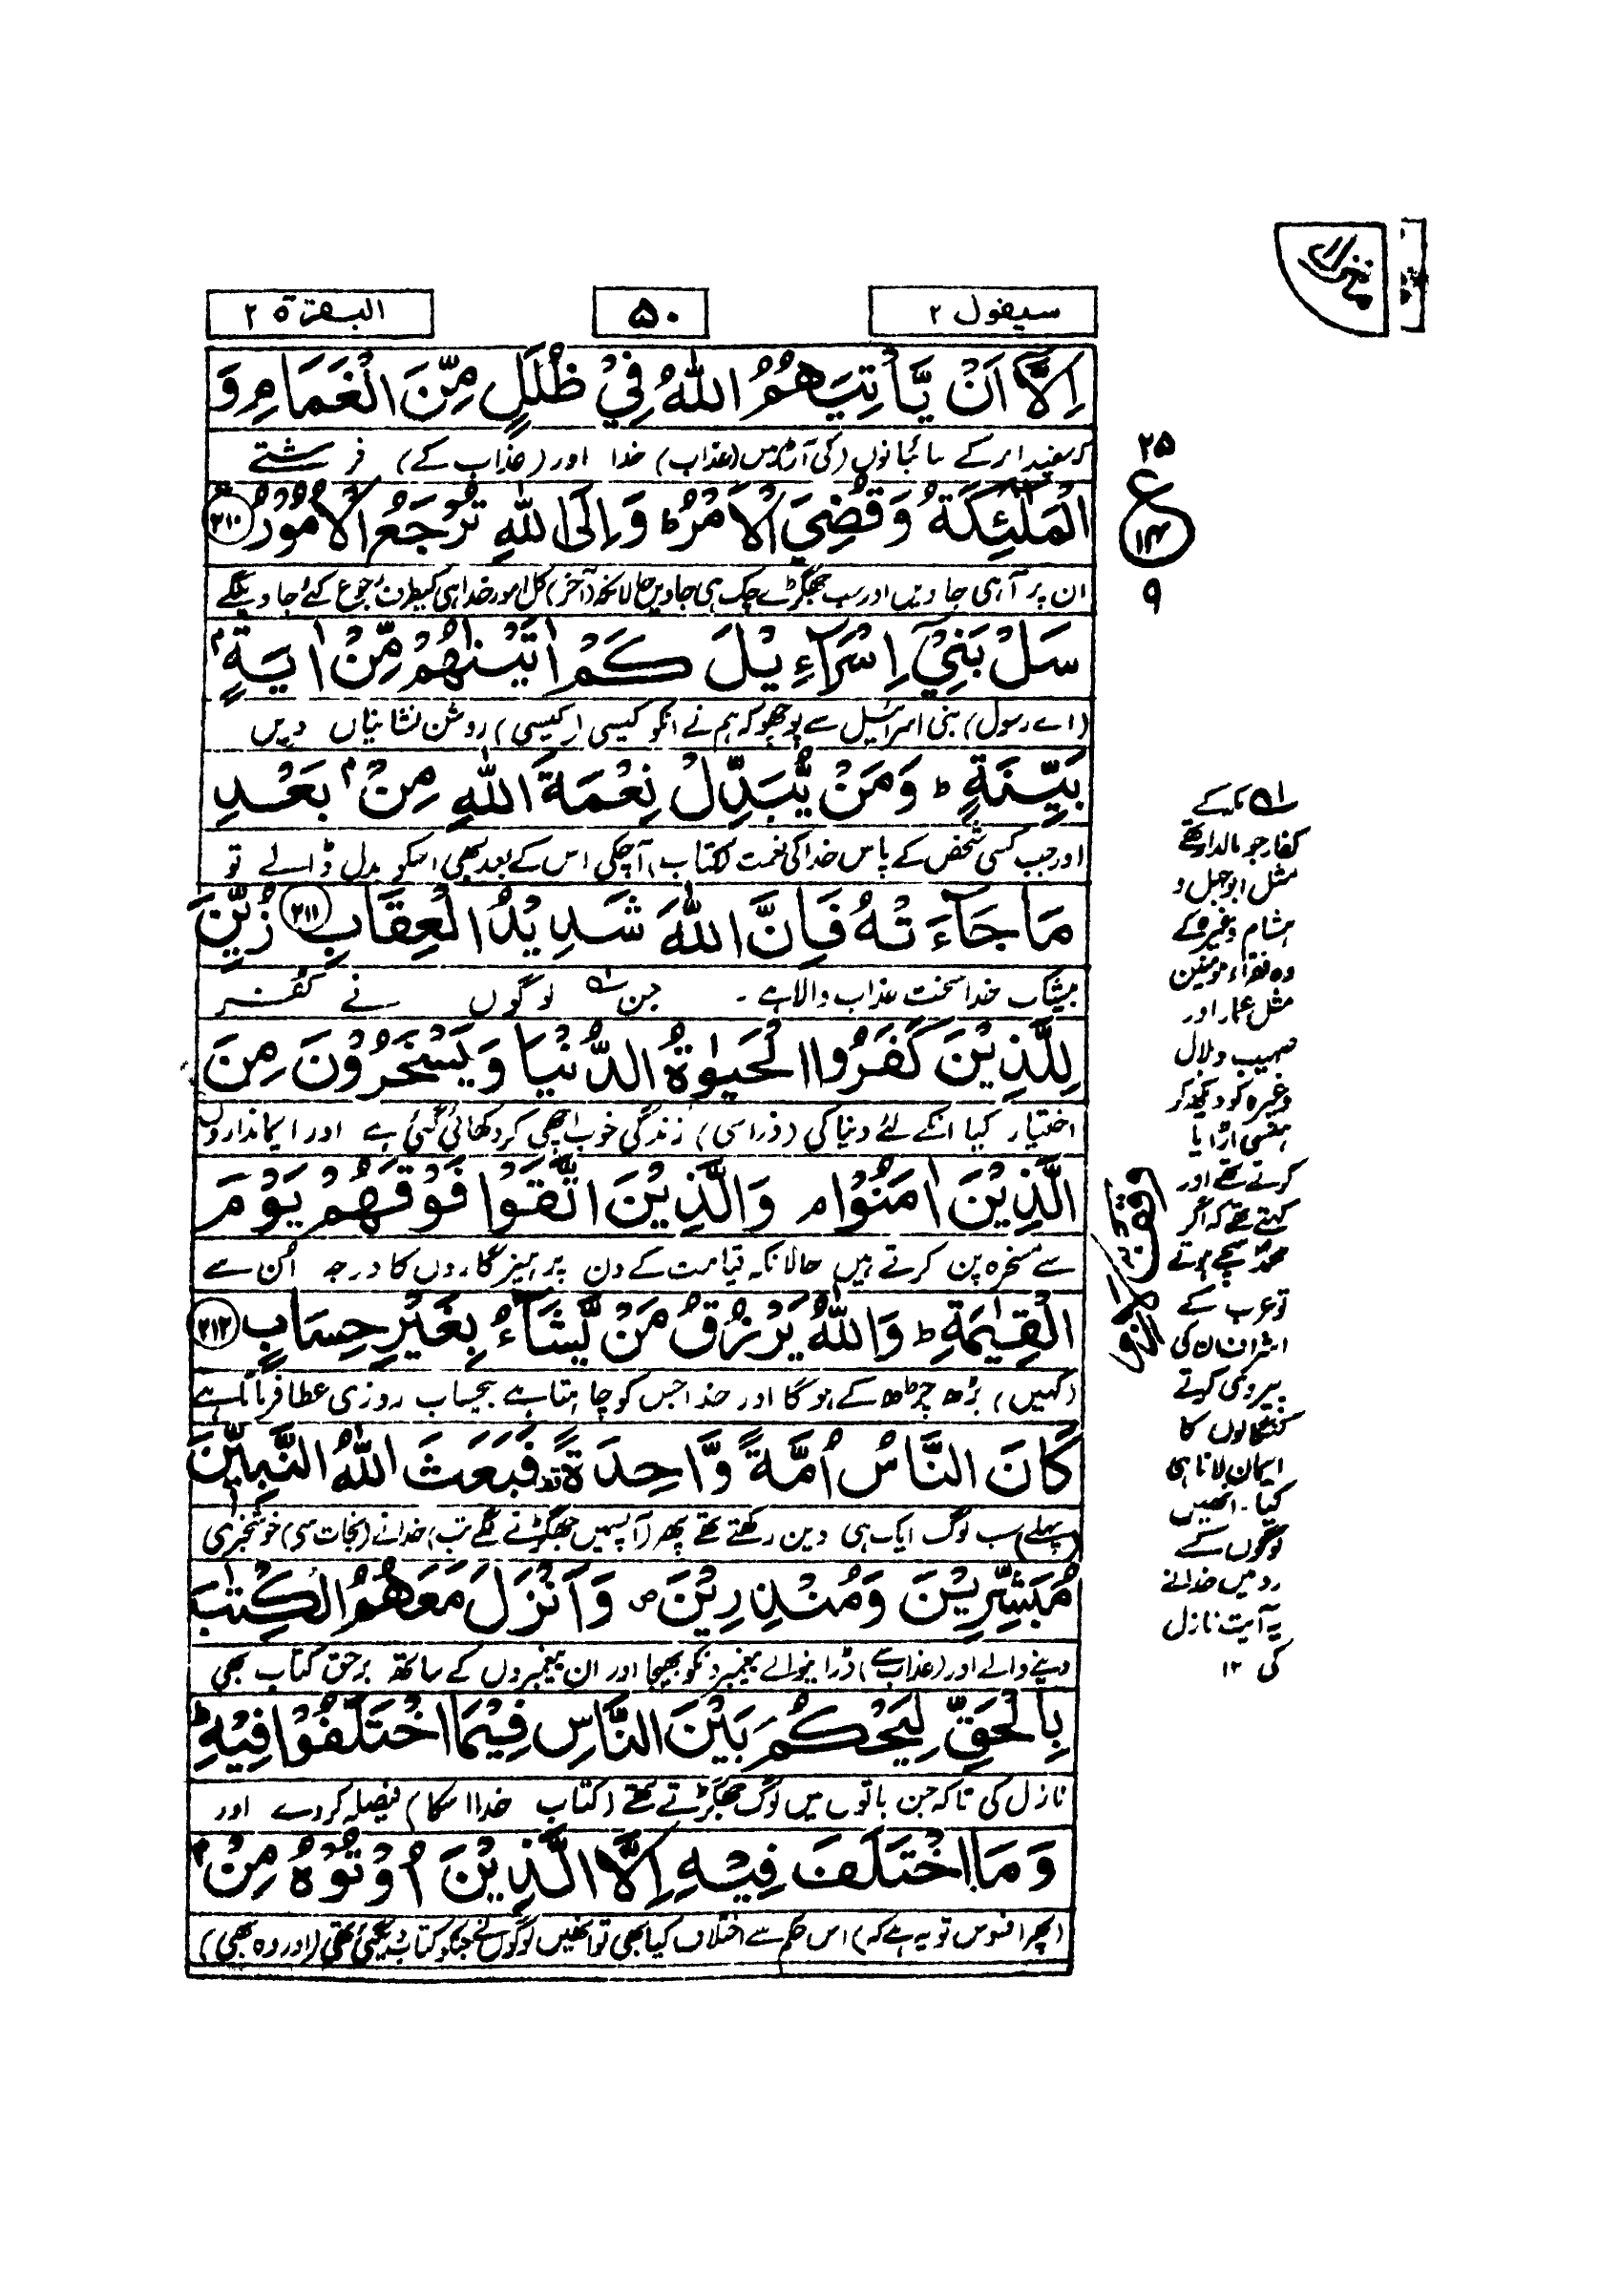 سیقول ۲
۵۰
البقرة ۲
اِلَّاۤ اَنْ يَّاْتِيَهُمُ اللّٰهُ فِيْ ظُلَلٍ مِّنَ الْغَمَامِ وَ
کہ سفید ابر کے سائبانوں (کی آڑ) میں (عذاب) خدا اور (عذاب کے) فرشتے
الْمَلٰٓئِكَةُ وَقُضِيَ الْاَمْرُ ؕ وَاِلَى اللّٰهِ تُرْجَعُ الْاُمُوْرُ ۲۱۰
ان پر آ ہی جاویں اور سب جھگڑے چک ہی جاویں حالانکہ (آخر) کل امور خدا ہی کیطرف رجوع کئے جاوینگے
سَلْ بَنِيْۤ اِسْرَآءِيْلَ كَمْ اٰتَيْنٰهُمْ مِّنْ اٰيَةٍۭ
(اے رسول) بنی اسرائیل سے پوچھو کہ ہم نے انکو کیسی (کیسی) روشن نشانیاں دیں
بَيِّنَةٍ ؕ وَمَنْ يُّبَدِّلْ نِعْمَةَ اللّٰهِ مِنْۢ بَعْدِ
اور جب کسی شخص کے پاس خدا کی نعمت (کتاب) آچکی اس کے بعد بھی اسکو بدل ڈالے تو
مَا جَآءَتْهُ فَاِنَّ اللّٰهَ شَدِيْدُ الْعِقَابِ ۲۱۱ زُيِّنَ
بیشک خدا سخت عذاب والا ہے ۔ جن لوگوں نے کفر
لِلَّذِيْنَ كَفَرُوا الْحَيٰوةُ الدُّنْيَا وَيَسْخَرُوْنَ مِنَ
اختیار کیا انکے لئے دنیا کی (ذرا سی) زندگی خوب اچھی کر دکھائی گئی ہے اور ایمانداروں
الَّذِيْنَ اٰمَنُوْا ۘ وَالَّذِيْنَ اتَّقَوْا فَوْقَهُمْ يَوْمَ
سے مسخرہ پن کرتے ہیں حالانکہ قیامت کے دن پرہیزگاروں کا درجہ اُن سے
الْقِيٰمَةِ ؕ وَاللّٰهُ يَرْزُقُ مَنْ يَّشَآءُ بِغَيْرِ حِسَابٍ ۲۱۲
(کہیں) بڑھ چڑھ کے ہوگا اور خدا جس کو چاہتا ہے بیحساب روزی عطا فرماتا ہے
كَانَ النَّاسُ اُمَّةً وَّاحِدَةً ۫ فَبَعَثَ اللّٰهُ النَّبِيّٖنَ
(پہلے) سب لوگ ایک ہی دین رکھتے تھے پھر (آپسمیں جھگڑنے لگے تب) خدا نے (نجات سے) خوشخبری
مُبَشِّرِيْنَ وَمُنْذِرِيْنَ ۪ وَاَنْزَلَ مَعَهُمُ الْكِتٰبَ
دینے والے اور (عذاب سے) ڈرانیوالے پیغمبرونکو بھیجا اور ان پیغمبروں کے ساتھ برحق کتاب بھی
بِالْحَقِّ لِيَحْكُمَ بَيْنَ النَّاسِ فِيْمَا اخْتَلَفُوْا فِيْهِ ؕ
نازل کی تاکہ جن باتوں میں لوگ جھگڑتے تھے (کتاب خدا اسکا) فیصلہ کر دے اور
وَمَا اخْتَلَفَ فِيْهِ اِلَّا الَّذِيْنَ اُوْتُوْهُ مِنْۢ
(پھر افسوس تو یہ ہے کہ) اس حکم سے اختلاف کیا بھی تو انھیں لوگوں نے جنکو کتاب دیگئی تھی (اور وہ بھی)
۲۵
ع
۱۴
۹
مکہ کے
کفار جو مالدار تھے
مثل ابوجہل و
ہشام وغیرہ کے
وہ فقراء مومنین
مثل عمار اور
صہیب و بلال
وغیرہ کو دیکھ کر
ہنسی اڑایا
کرتے تھے اور
کہتے تھے کہ اگر
محمدؐ سچے ہوتے
تو عرب کے
اشراف ان کی
پیروی کرتے
کنگالوں کا
ایمان لانا ہی
کیا۔ انھیں
لوگوں کے
رد میں خدا نے
یہ آیت نازل
کی ۱۲